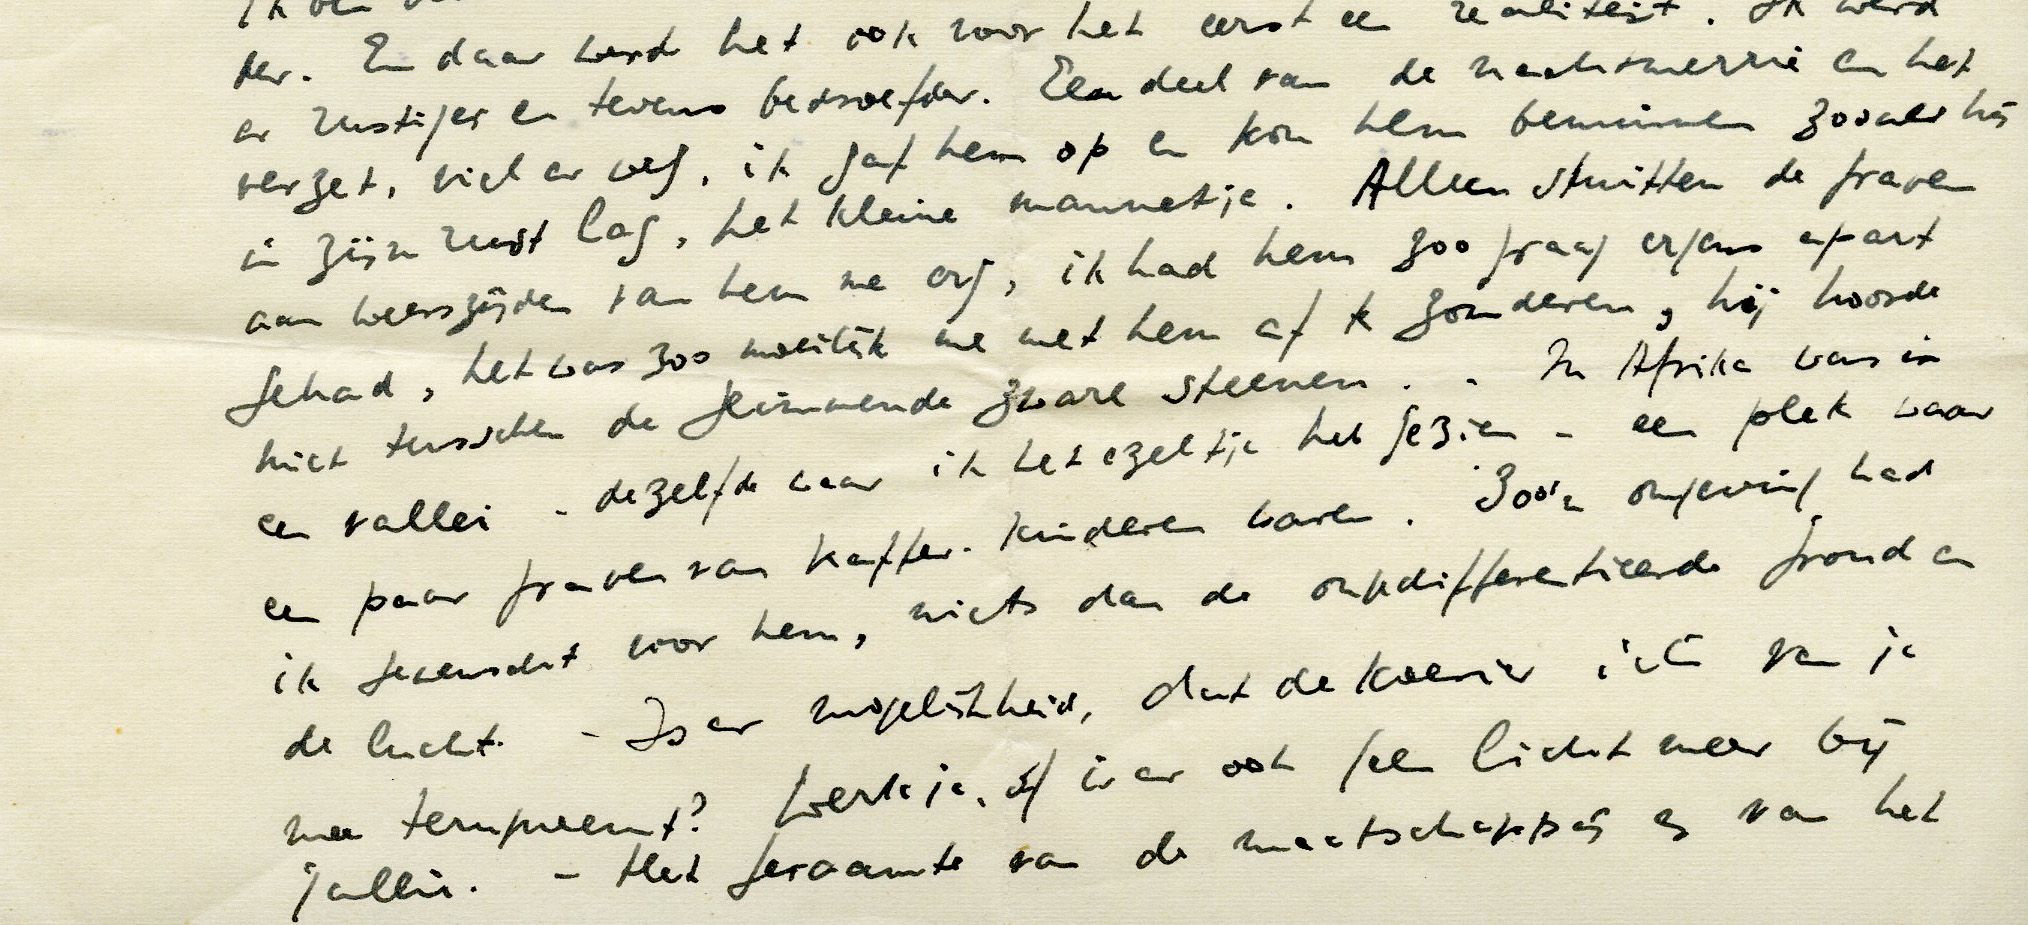 Ik ben
der. En daar werd het ook voor het eerst een realiteit. Ik werd
er rustiger en tevens bedroefder. Een deel van de nachtmerrie en het
verzet, viel er weg, ik gaf hem op en kon hem beminnen zooals hij
in zijn rust lag, het kleine mannetje. Alleen stuitten de graven
aan weerszijden van hem me erg, ik had hem zoo graag ergens apart
gehad, het was zoo moeilijk me met hem af te zonderen, hij hoorde
niet tusschen de glimmende zware steenen. - In Afrika was in
een vallei - dezelfde waar ik het ezeltje heb gezien - een plek waar
een paar graven van kaffer-kinderen waren. Zoo'n omgeving had
ik gewenscht voor hem, niets dan de ongedifferentieerde grond en
de lucht. - Is er mogelijkheid, dat de koerier iets van je
mee terugneemt? Werk je, of is er ook geen licht meer bij
jullie. - Het geraamte van de maatschappij es van het